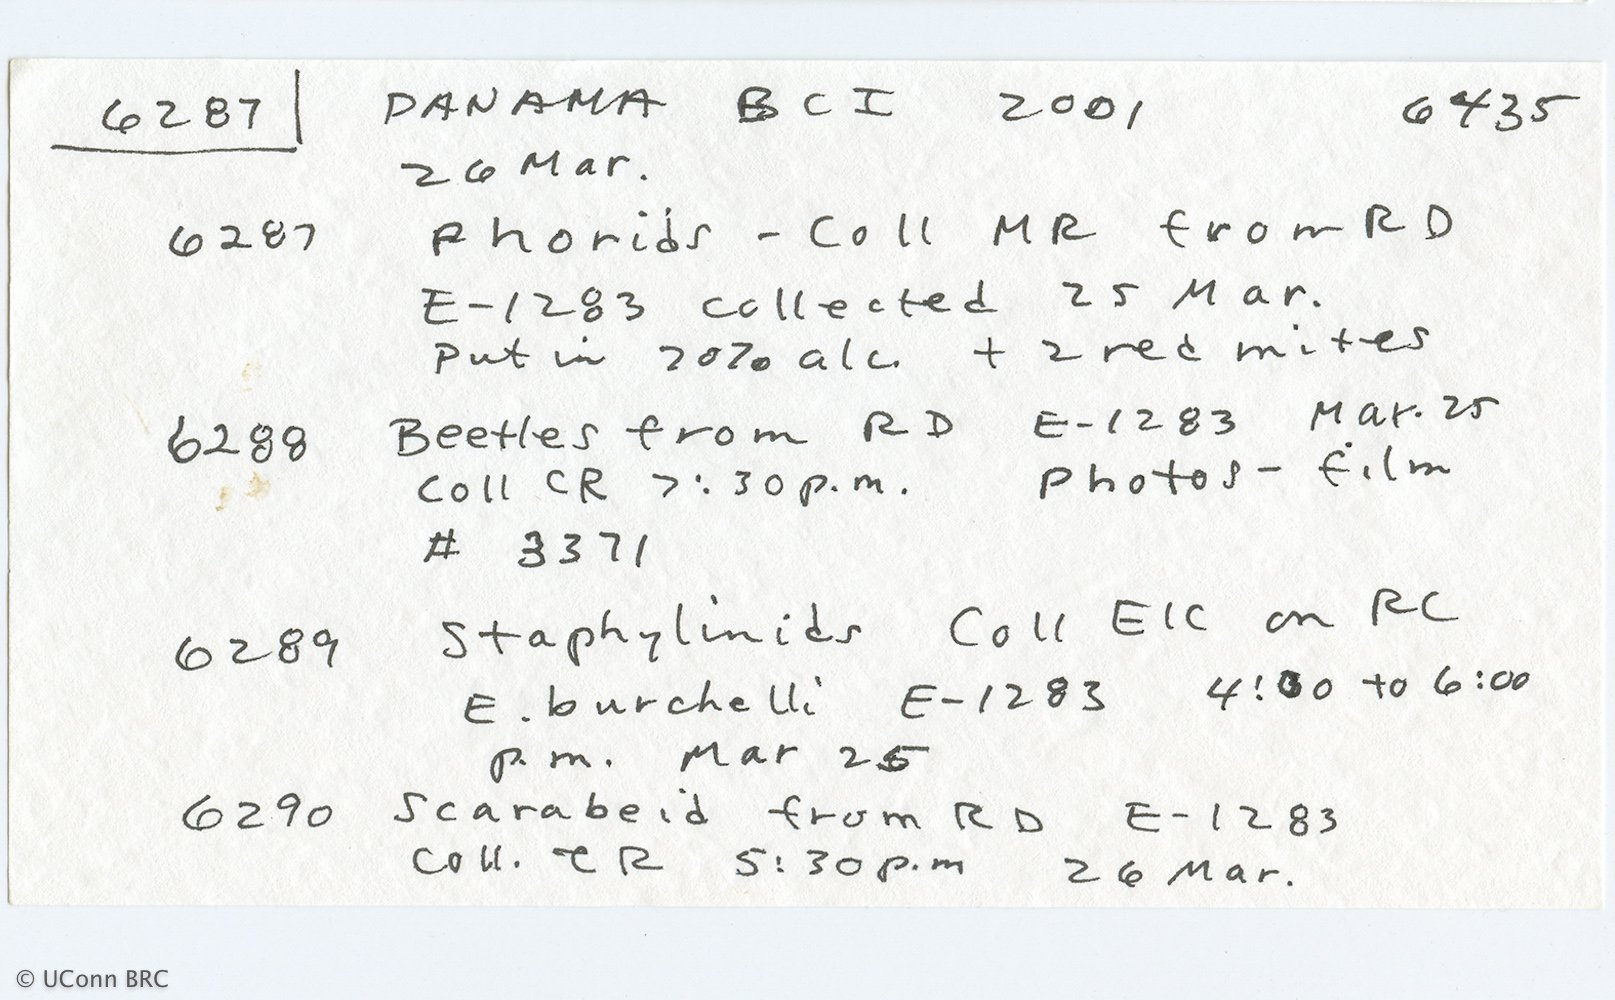 6287 PANAMA BCI 2001 6435
26 Mar.
6287 Phorids - Coll MR from RD
E-1283 collected 25 Mar.
Put in 70% alc. + 2 red mites
6288 Beetles from RD E-1283 Mar. 25
Coll CR 7:30 p.m. Photos - film
# 3371
6289 Staphylinids Coll EIC on RC
E. burchelli E-1283 4:30 to 6:00
p.m. Mar 25
6290 Scarabeid from RD E-1283
Coll. CR 5:30 p.m 26 Mar.
© UConn BRC